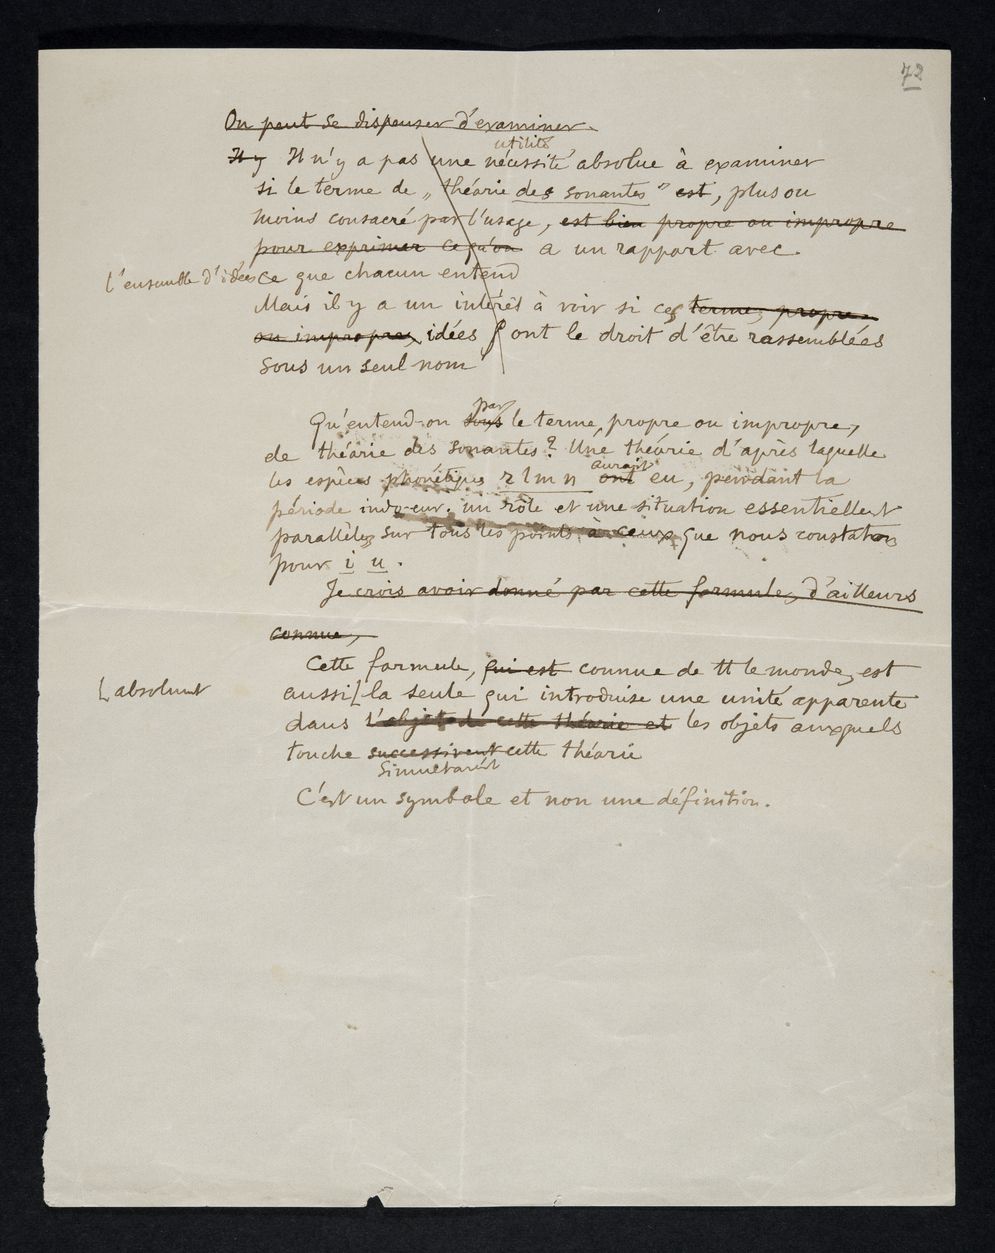 72
On peut se dispenser d'examiner
Il y Il n'y a pas une nécessité absolue à examiner
utilité
si le terme de „ théorie des sonantes " est, plus ou
moins consacré par l'usage, est bien propre ou impropre
pour exprimer ce qu'on a un rapport avec
l'ensemble d'idées ce que chacun entend
Mais il y a un intérêt à voir si ces termes, propres
ou impropres, idées ont le droit d'être rassemblées
sous un seul nom
Qu'entend-on sous le terme, propre ou impropre,
par
de théorie des sonantes ? Une théorie d'après laquelle
les espèces phonétiques r l m n ont eu, pendant la
auraient
période indo-eur. un rôle et une situation essentiellent
parallèles sur tous les points à ceux que nous constatons
pour i u .
Je crois avoir donné par cette formule, d'ailleurs
connue,
Cette formule, qui est connue de tt le monde, est
aussi [ la seule qui introduise une unité apparente
[ absolument
dans l'objet de cette théorie et les objets auxquels
touche successivent cette théorie
simultanént
C'est un symbole et non une définition.